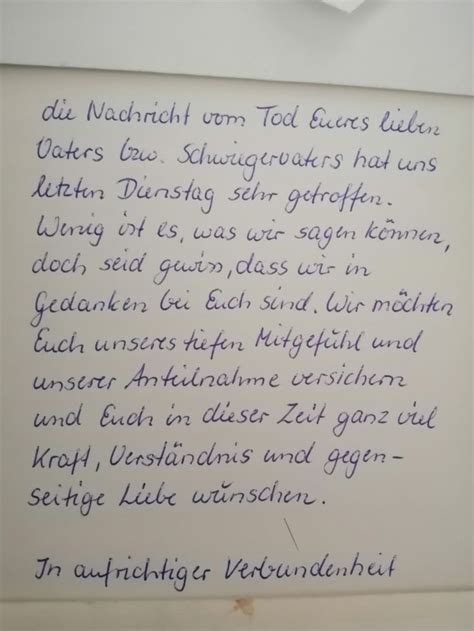 die Nachricht vom Tod Eueres lieben
Vaters bzw. Schwiegervaters hat uns
letzten Dienstag sehr getroffen.
Wenig ist es, was wir sagen können,
doch seid gewiss, dass wir in
Gedanken bei Euch sind. Wir möchten
Euch unseres tiefen Mitgefühl und
unserer Anteilnahme versichern
und Euch in dieser Zeit ganz viel
Kraft, Verständnis und gegen-
seitige Liebe wünschen.
In aufrichtiger Verbundenheit